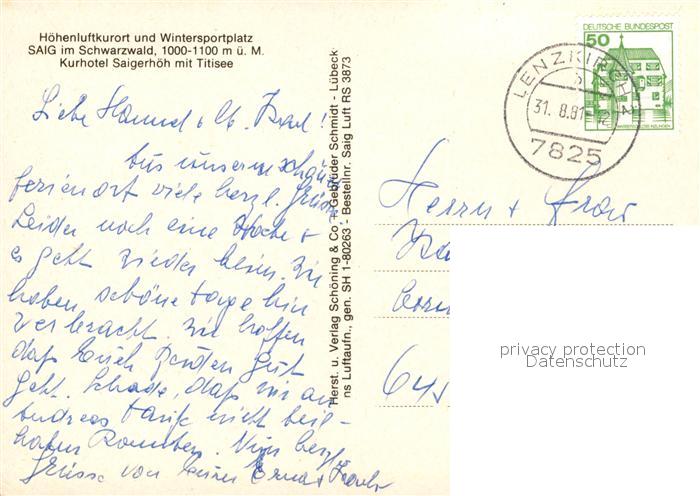 Höhenluftkurort und Wintersportplatz
SAIG im Schwarzwald, 1000-1100 m ü. M.
Kurhotel Saigerhöh mit Titisee
Liebe Hannel u. Karl!
Aus unserem
ferienort viele herzl. Grüsse
Leider noch eine Woche +
es geht wieder heim. Wir
haben schöne Tage hier
verbracht. Wir hoffen
daß Euch beiden gut
geht. Schade, daß wir an
Andreas Taufe nicht teil-
haben konnten. Nun herzl.
Grüsse von Euren Erna +
Herst. u. Verlag Schöning & Co + Gebrüder Schmidt - Lübeck
ns Luftaufn., gen. SH 1-80263 - Bestellnr. Saig Luft RS 3873
DEUTSCHE BUNDESPOST
50
LENZKIRCH
31. 8.81
7825
Herrn + Frau
Ka
645
privacy protection
Datenschutz